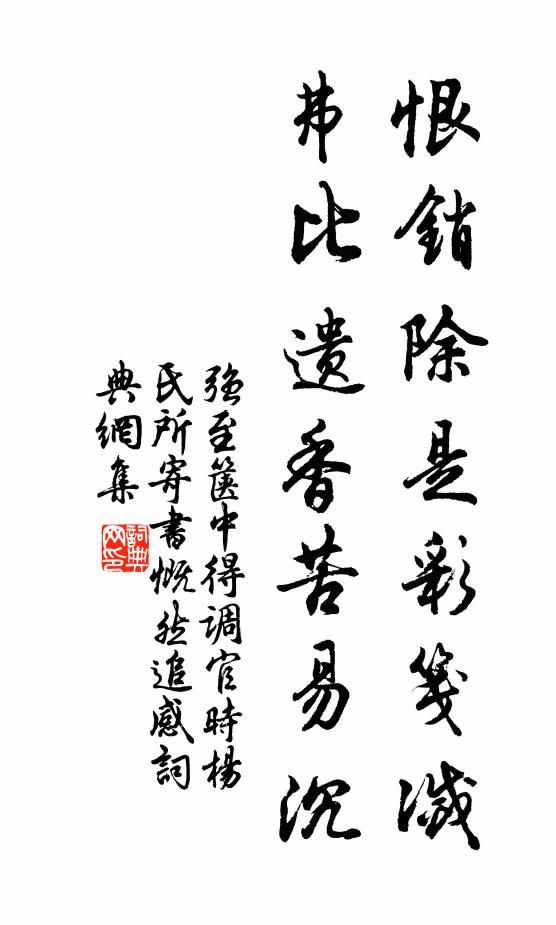 恨銷除是彩箋滅
弗比遺香苦易沉
强至篋中得調官時楊
氏所寄書慨然追感詞
典網集
詞典
网印